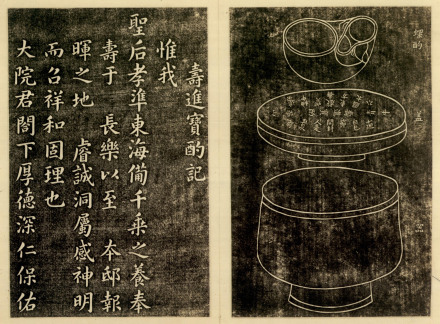 壽進寶酌記
惟我
聖后孝準東海備千乘之養奉
壽于 長樂以至 本邸報
暉之地 睿誠洞屬感神明
而召祥和固理也
大院君閤下厚德深仁保佑
蓋